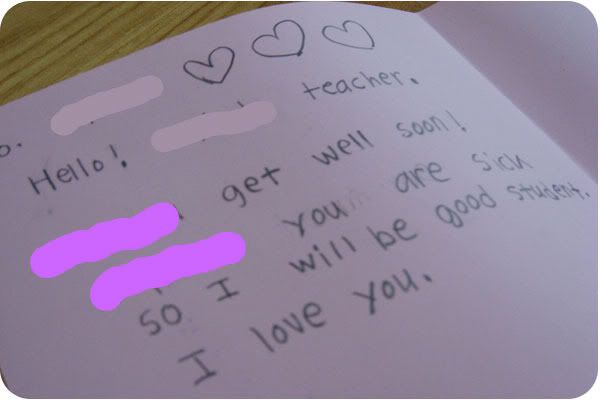 o.
Hello! teacher.
get well soon!
you are sick
so I will be good student.
I love you.